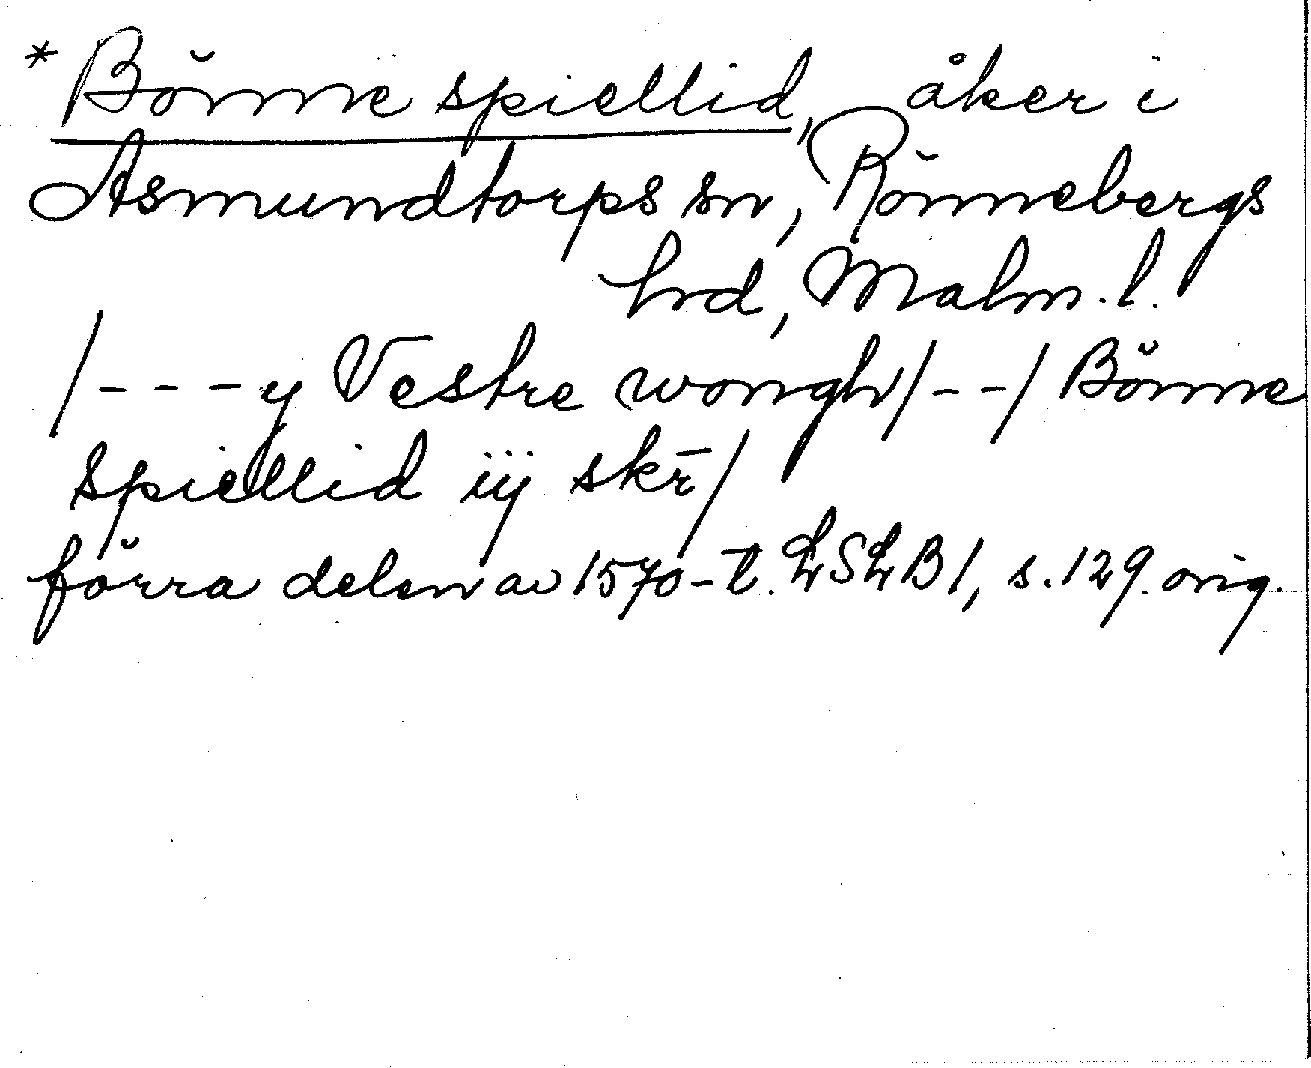 *Bönne spiellid, åker i
Asmundtorps sn, Rönnebergs
hrd, Malm. l.
/---y Vestre wongh/--/ Bönne
spiellid iij skr̄/
förra delen av 1570-t. LSLB1, s. 129. orig.